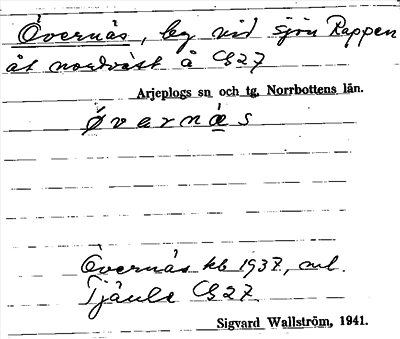 Övernäs, lbg vid sjön Rappen
åt nordväst å C827
Arjeplogs sn och tg, Norrbottens län.
Ø v a r n æ s
Övernäs kb 1937, avl.
Tjäule C827
Sigvard Wallström, 1941.